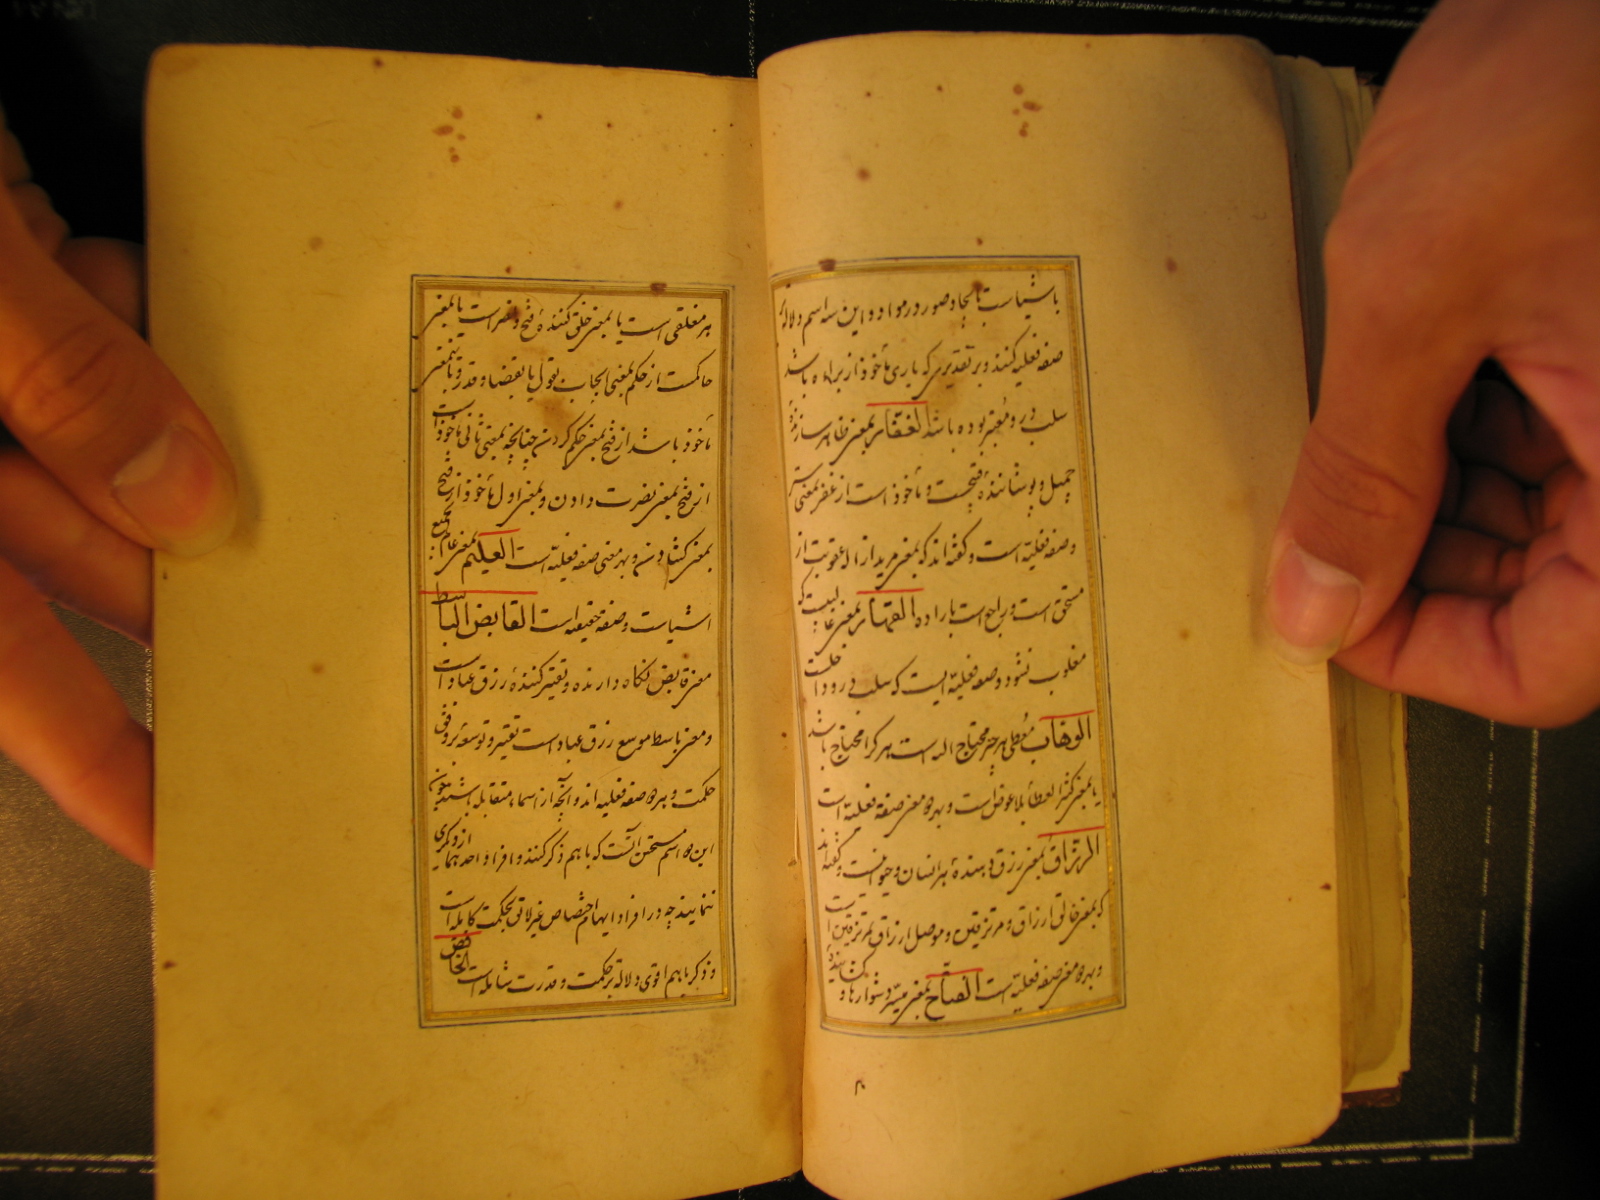 باشیاست بایجاد صور در مواد و این سه اسم دلاله
صفه فعلیه کنند و بر تقدیری که باری مأخوذ از براء باشد
سلب در و معتبر بوده باشد الغفار بمعنی ظاهر سازندهٔ
جمیل و پوشانندهٔ قبیحست و مأخوذ است از غفر بمعنی ستر
و صفه فعلیّه است و کفته اند که بمعنی مرید ازالهٔ عقوبت از
مستحق است و راجع است باراده القهار بمعنی غالبیست که
مغلوب نشود و صفه فعلیّه ایست که سلب در و داخلست
الوهاب معطی هر چیز محتاج الیه است بهر که را محتاج باشد
یا بمعنی کثیر العطاء بلاعوض است و بهر دو معنی صفه فعلیّه است
الرزاق بمعنی رزق دهندهٔ هر انسان و حیوانست و کفته اند
که بمعنی خالق ارزاق و مرتزقین و موصل ارزاق بمرتزقین است
و بهر دو معنی صفه فعلیّه است الفتاح بمعنی میسر دشوارها و کشایندهٔ
۸
هر مغلقی است یا بمعنی خلق کنندهٔ فتح و نصر است یا بمعنی
حاکمست از حکم بمعنی ایجاب بقول یا بقضا و قدر و باینمعنی
مأخوذ باشد از فتح بمعنی حکم کردن چنانچه بمعنی ثانی مأخوذ است
از فتح بمعنی نصرت دادن و بمعنی اول مأخوذ از فتح
بمعنی کشادن و بهر معنی صفه فعلیّه است العلیم بمعنی عالم بجمیع
اشیاست و صفه حقیقیه است القابض الباسط
معنی قابض نکاه دارنده و تقتیر کنندهٔ رزق عباد است
و معنی باسط موسع رزق عباد است تقتیر و توسعه بر وفق
حکمت و هر دو صفه فعلیه اند و آنچه از اسماء متقابله باشند چون
این دو اسم مستحسن آنست که با هم ذکر کنند و افراد احدهما از دیکری
ننمایند چه در افراد ایهام اختصاص غیر لایق بحکمت کامله است
و ذکر با هم اقوی دلاله بر حکمت و قدرت شامله است الخافض